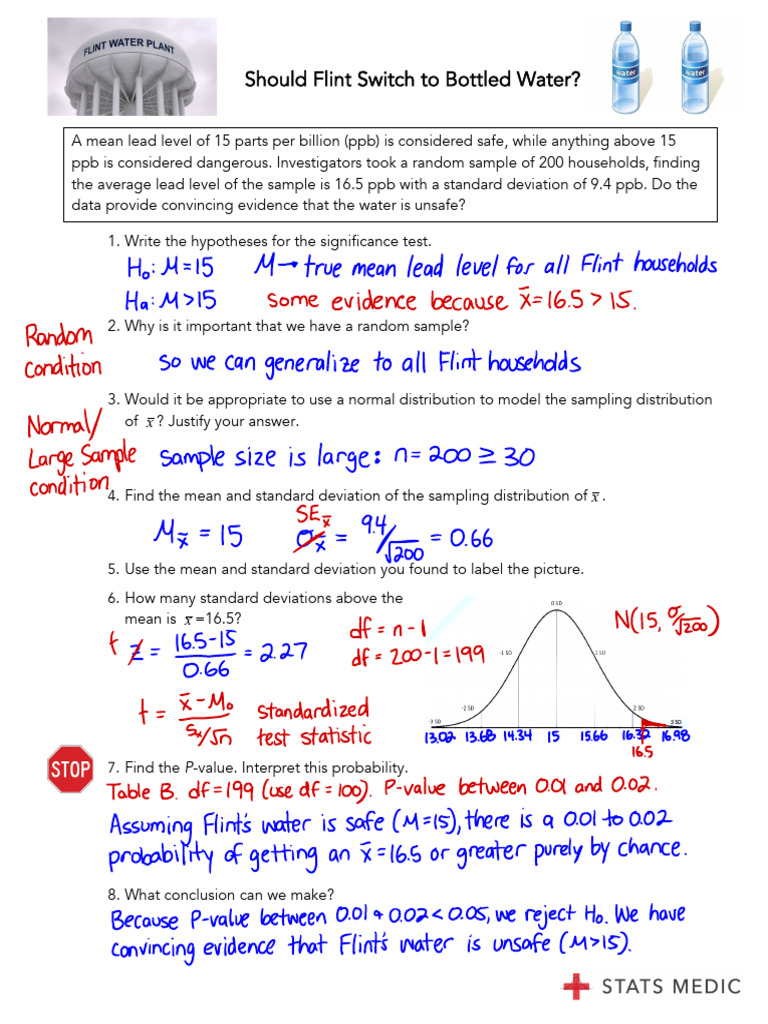 FLINT WATER PLANT
Should Flint Switch to Bottled Water?
water
water
A mean lead level of 15 parts per billion (ppb) is considered safe, while anything above 15
ppb is considered dangerous. Investigators took a random sample of 200 households, finding
the average lead level of the sample is 16.5 ppb with a standard deviation of 9.4 ppb. Do the
data provide convincing evidence that the water is unsafe?
1. Write the hypotheses for the significance test.
H₀: M=15 M→ true mean lead level for all Flint households
Ha: M>15 some evidence because x̄=16.5 > 15.
2. Why is it important that we have a random sample?
Random
condition
so we can generalize to all Flint households
3. Would it be appropriate to use a normal distribution to model the sampling distribution
of x̄ ? Justify your answer.
Normal/
Large Sample
condition
sample size is large: n = 200 ≥ 30
4. Find the mean and standard deviation of the sampling distribution of x̄ .
Mx̄ = 15 SEx̄ σx̄ = 9.4/√200 = 0.66
5. Use the mean and standard deviation you found to label the picture.
6. How many standard deviations above the
mean is x̄ =16.5?
t z = 16.5-15/0.66 = 2.27
df = n-1
df = 200-1 = 199
t = x̄-M₀/Sx/√n standardized
test statistic
N(15, σ/√200)
0 SD
-1 SD 1 SD
-2 SD 2 SD
-3 SD 3 SD
13.02 13.68 14.34 15 15.66 16.32 16.98
16.5
STOP
7. Find the P-value. Interpret this probability.
Table B. df = 199 (use df = 100). P-value between 0.01 and 0.02.
Assuming Flint's water is safe (M=15), there is a 0.01 to 0.02
probability of getting an x̄ = 16.5 or greater purely by chance.
8. What conclusion can we make?
Because P-value between 0.01 & 0.02 < 0.05, we reject H₀. We have
convincing evidence that Flint's water is unsafe (M>15).
STATS MEDIC